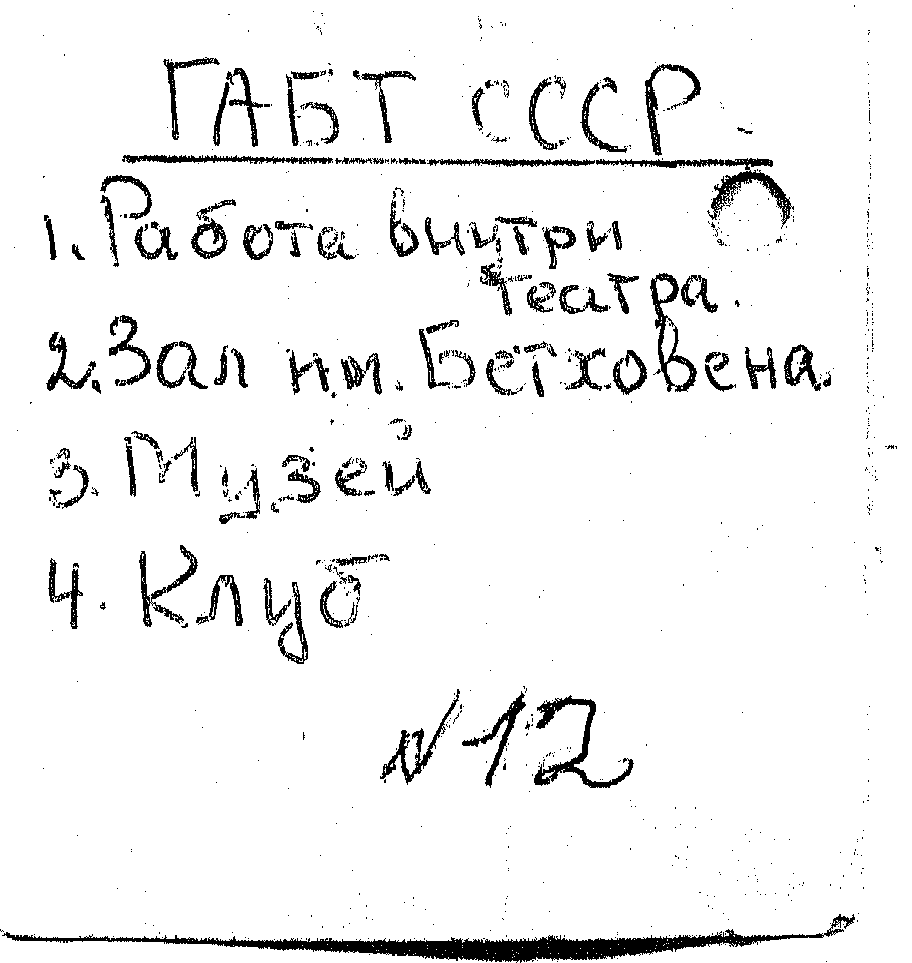 ГАБТ СССР.
1. Работа внутри
театра.
2. Зал им. Бетховена.
3. Музей
4. Клуб
N 12